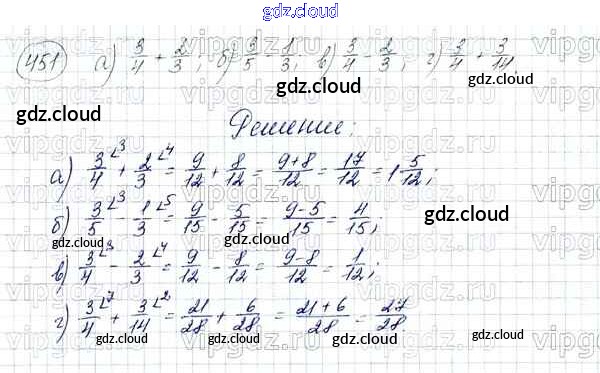 gdz.cloud
451 а) 3/4 + 2/3; б) 3/5 - 1/3; в) 3/4 - 2/3; г) 3/4 + 3/14.
gdz.cloud gdz.cloud gdz.cloud
Решение:
gdz.cloud
а) 3/4 ∟3 + 2/3 ∟4 = 9/12 + 8/12 = 9+8/12 = 17/12 = 1 5/12;
б) 3/5 ∟3 - 1/3 ∟5 = 9/15 - 5/15 = 9-5/15 = 4/15;
gdz.cloud gdz.cloud
в) 3/4 ∟3 - 2/3 ∟4 = 9/12 - 8/12 = 9-8/12 = 1/12;
г) 3/4 ∟7 + 3/14 ∟2 = 21/28 + 6/28 = 21+6/28 = 27/28.
gdz.cloud gdz.cloud gdz.cloud